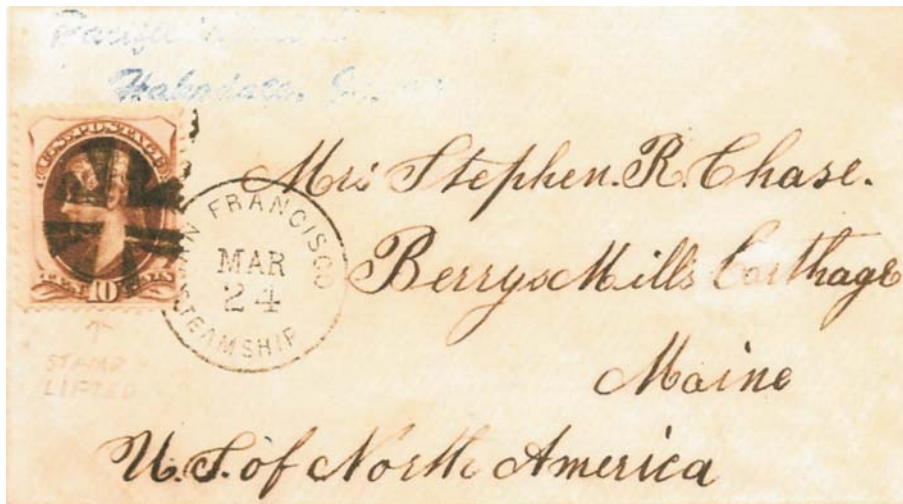 Pacific
Hakodate, Japan
U.S. POSTAGE
10
SAN FRANCISCO
MAR
24
STEAMSHIP
STAMP
LIFTED
Mrs Stephen. R. Chase.
Berrys Mills Carthage
Maine
U. S. of North America